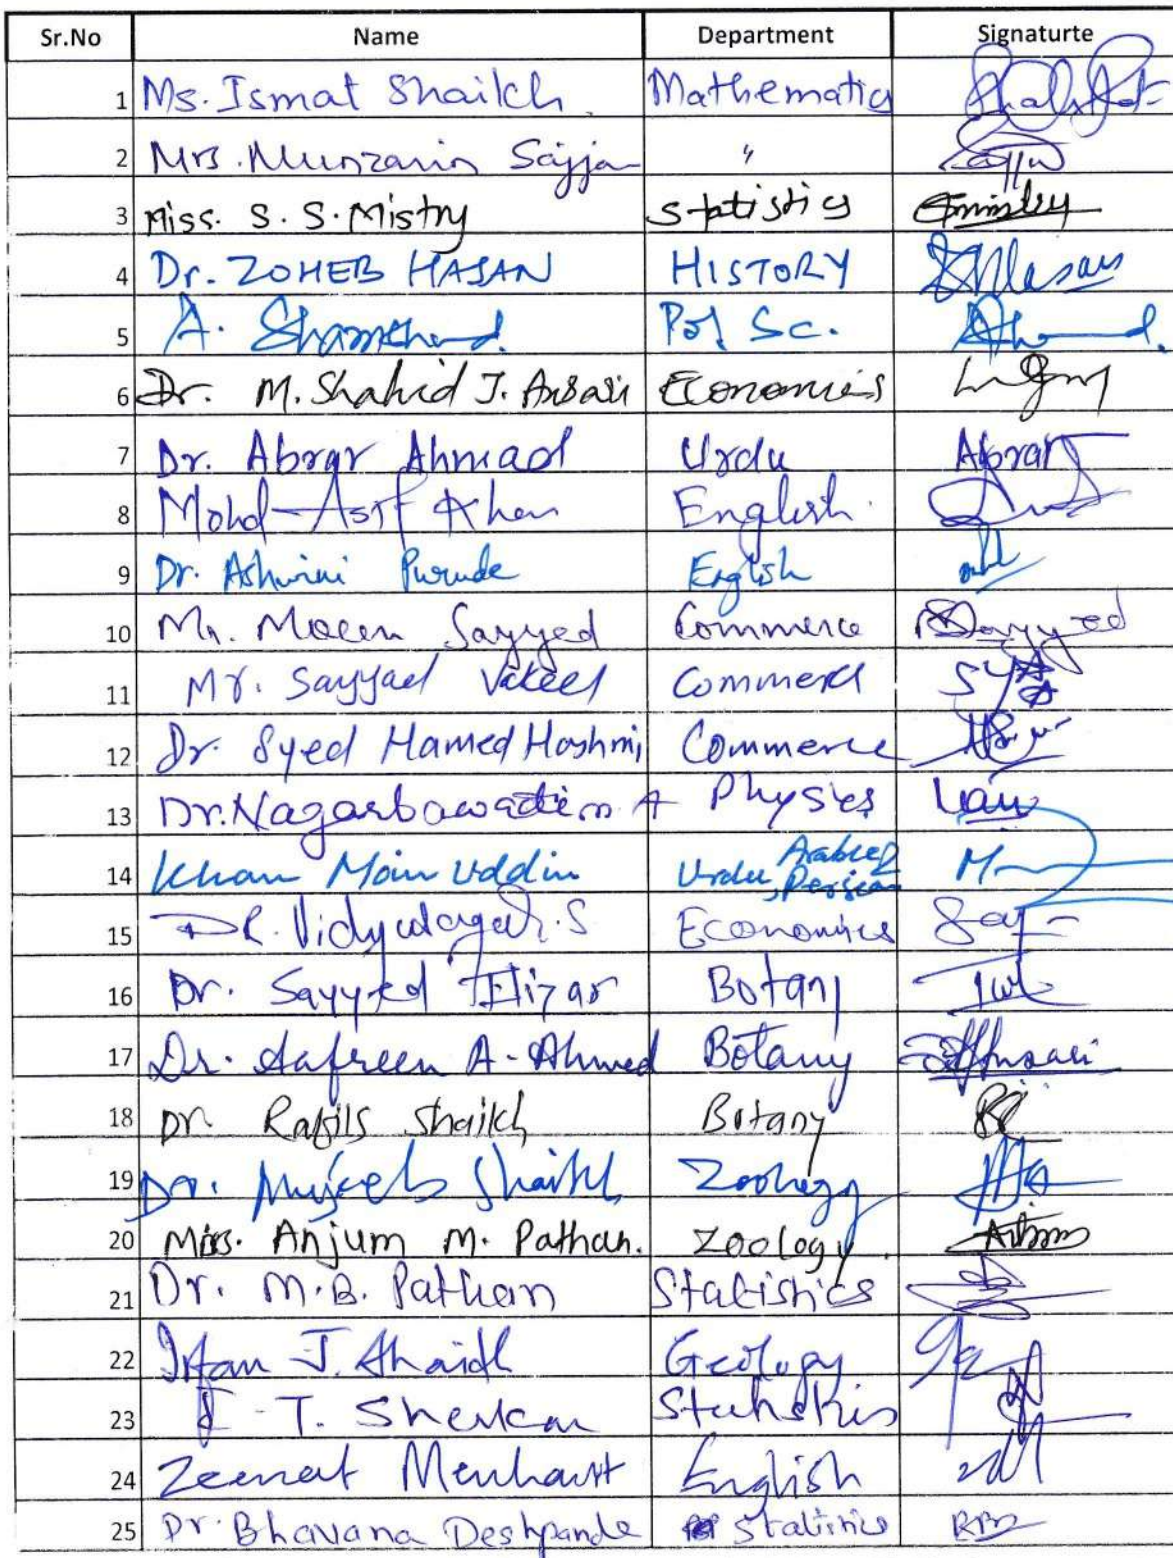 Sr.No Name Department Signaturte
1 Ms. Ismat Shaikh Mathematics
2 Mrs. Munzarin Sajjan "
3 Miss. S. S. Mistry Statistics
4 Dr. ZOHEB HASAN HISTORY
5 A. Pol Sc.
6 Dr. M. Shahid J. Ansari Economics
7 Dr. Abrar Ahmad Urdu Abrar
8 Mohd Asif Khan English
9 Dr. Ashwini Purude English
10 Mr. Moeen Sayyed Commerce Sayyed
11 Mr. Sayyad Vakeel Commerce
12 Dr. Syed Hamed Hashmi Commerce
13 Dr. A Physics
14 Khan Moin Uddin Urdu, Arabic & Persian
15 Dr. Vidyasagar. S Economics
16 Dr. Sayyed Botany
17 Dr. Aafreen A. Ahmed Botany
18 Dr. Shaikh Botany
19 Dr. Mujeeb Shaikh Zoology
20 Miss. Anjum M. Pathan. Zoology.
21 Dr. M.B. Pathan Statistics
22 Irfan J. Shaikh Geology
23 T. Sherkar Statistics
24 Zeenat English
25 Dr. Bhavana Deshpande Statistics